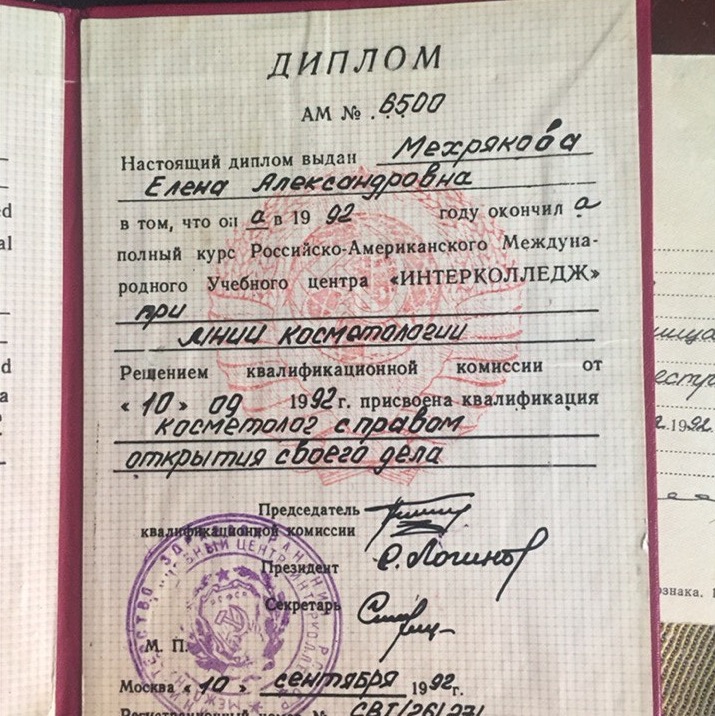 ДИПЛОМ
АМ № 6500
Настоящий диплом выдан Мехрякова
Елена Александровна
в том, что он а в 19 92 году окончил а
полный курс Российско-Американского Междуна-
родного Учебного центра «ИНТЕРКОЛЛЕДЖ»
при
линии косметологии
Решением квалификационной комиссии от
« 10 » 09 1992 г. присвоена квалификация
косметолог с правом
открытия своего дела
Председатель
квалификационной комиссии
Президент
С. Логинов
Секретарь
М. П.
Москва « 10 » сентября 1992 г.
Регистрационный номер №
d
al
d
a
1992
ознака.